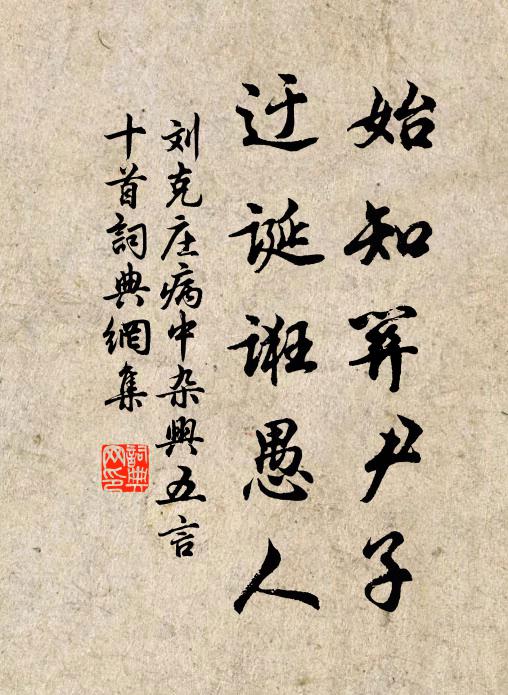 始知关尹子
迂诞诳愚人
刘克庄病中杂興五言
十首詞典網集
詞典
网印